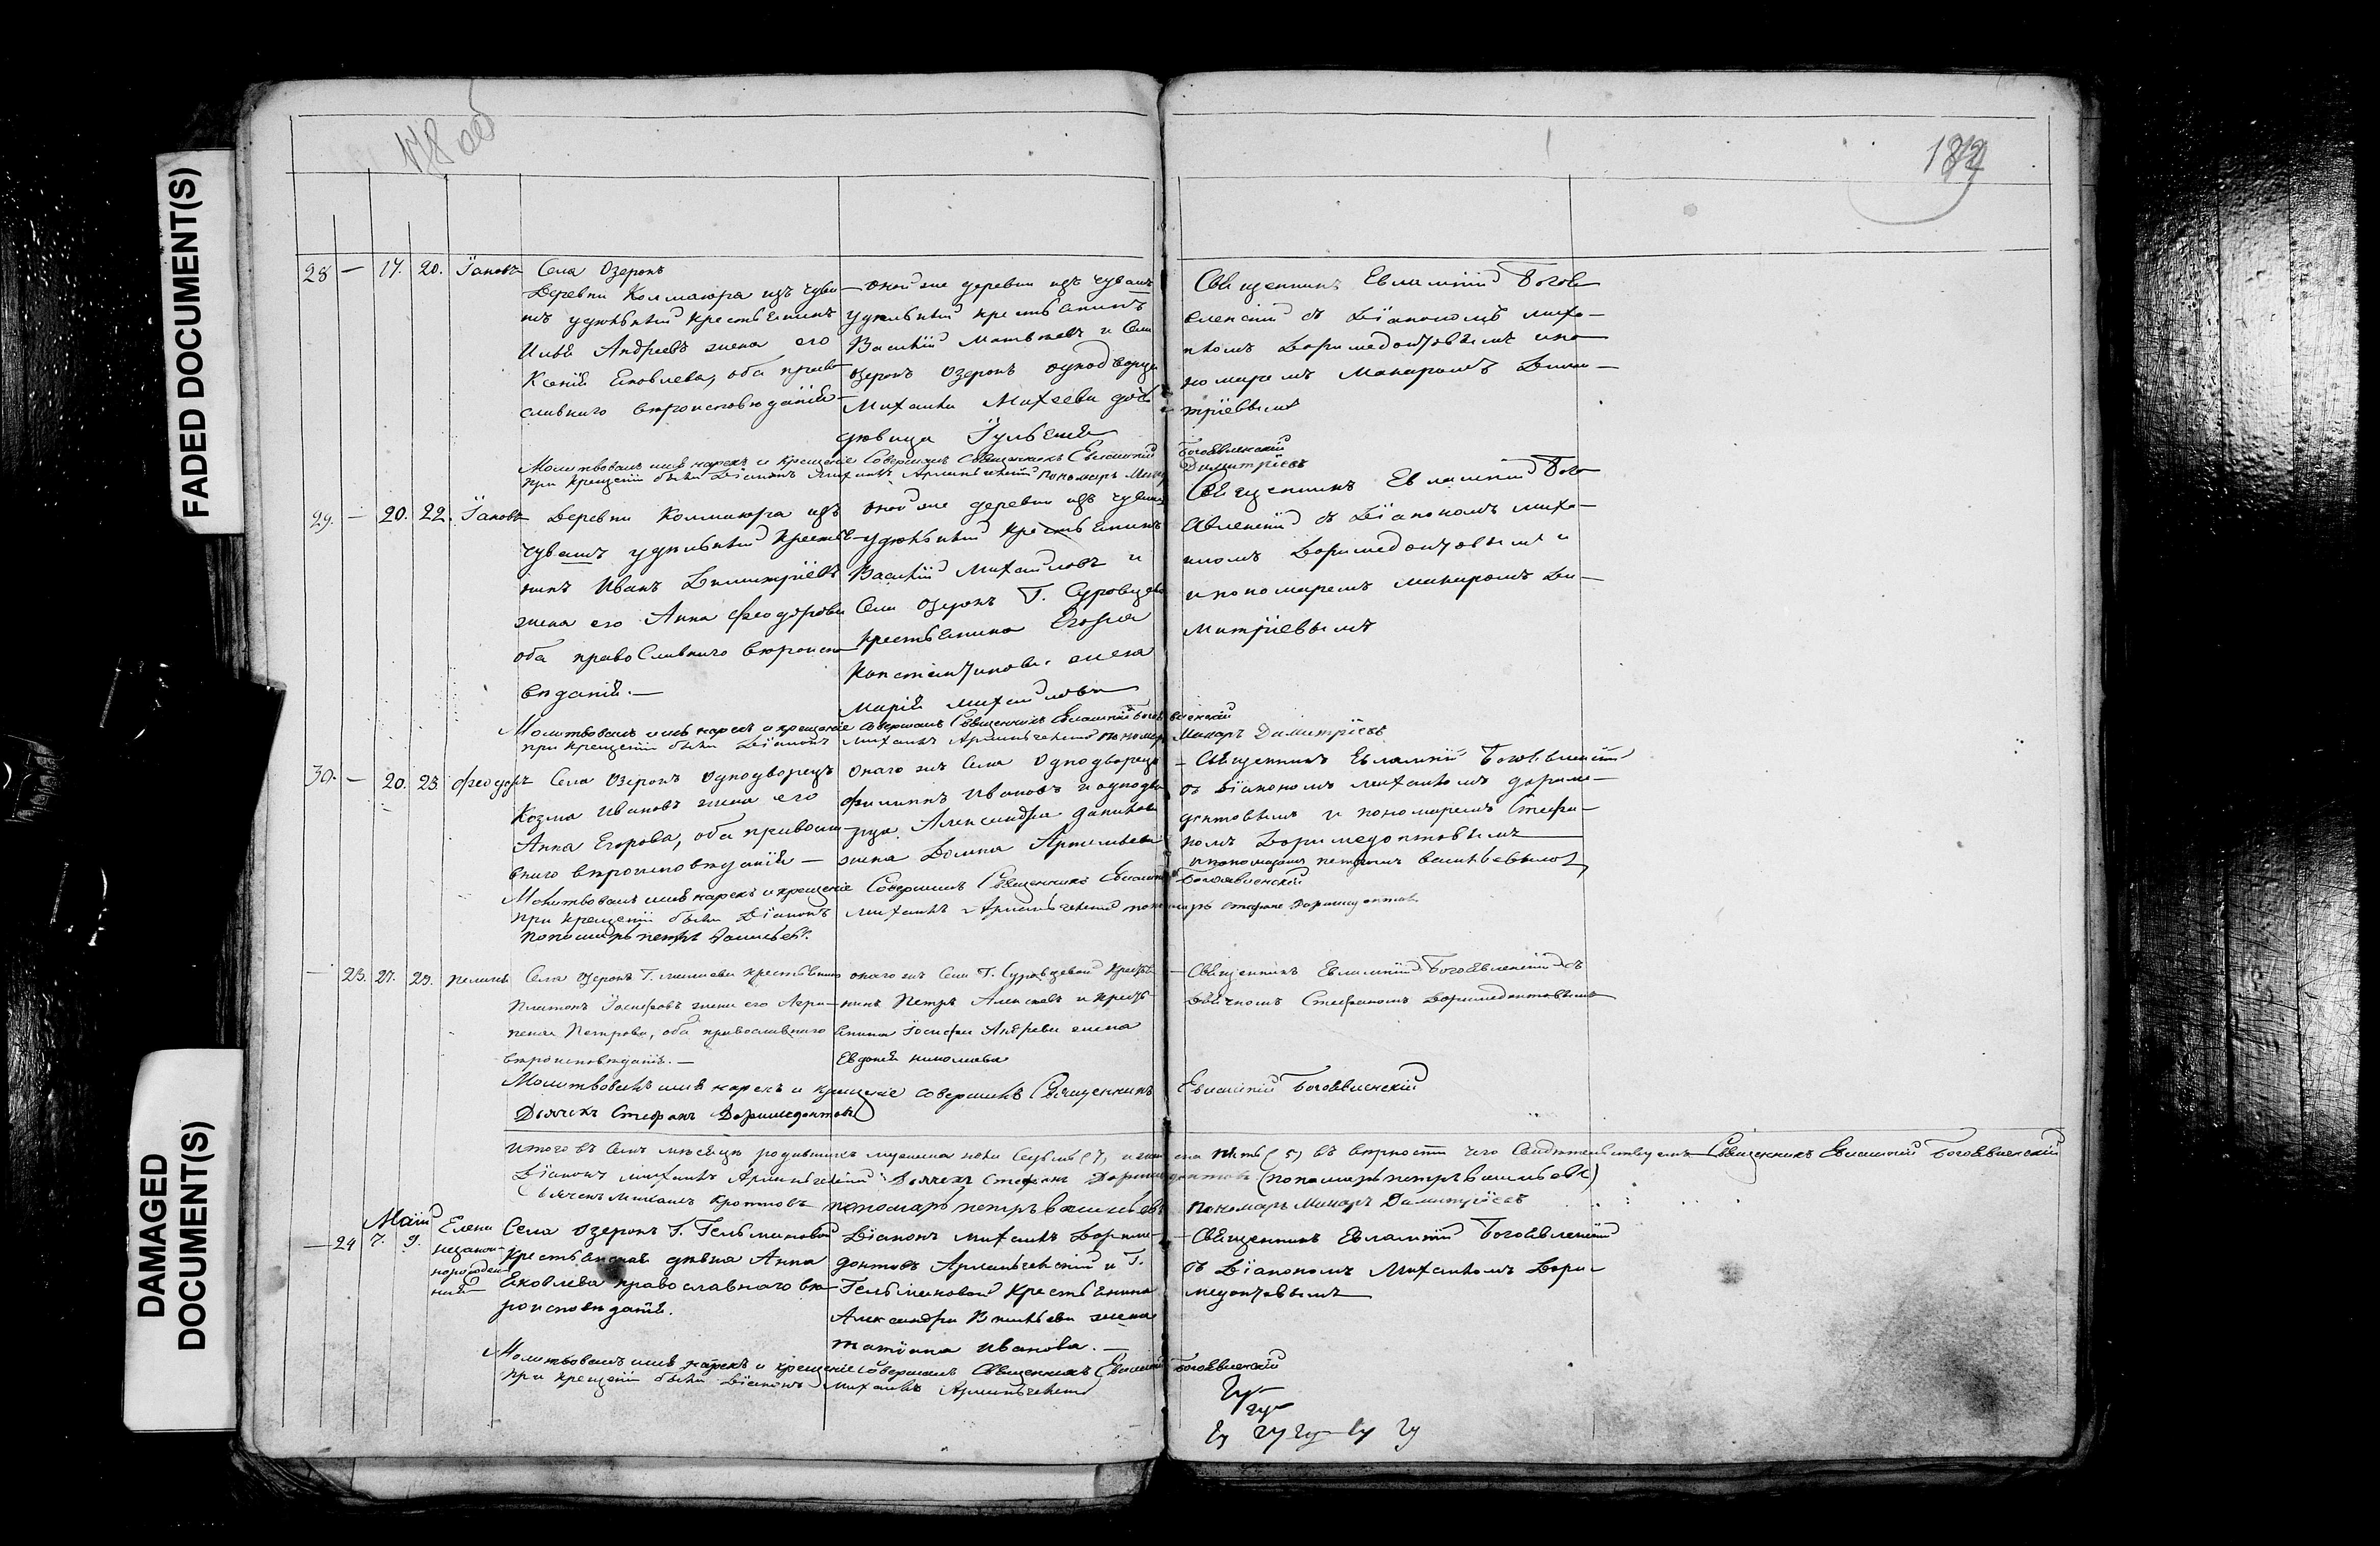 FADED DOCUMENT(S)
DAMAGED
DOCUMENT(S)
178 об
28 — 17. 20. Іаковъ
Села Озерокъ
Деревни Колмаюра изъ чува
шъ удѣльный крестьянинъ
Илья Андреевъ жена его
Ксенія Яковлева, оба право
славнаго вѣроисповѣданія
оной же деревни изъ чувашъ
удѣльный крестьянинъ
Василій Матвѣевъ и Села
Озерокъ Озерокъ однодворца
Михаила Михеева дочь
дѣвица Іульянія
Священникъ Евлампій Богоя
вленскій съ Діакономъ Миха
иломъ Доримедонтовымъ и по
номаремъ Макаромъ Дими
тріевымъ
Молитвовалъ имя нарекъ и крещеніе Совершилъ Священникъ Евлампій Богоявленскій
при крещеніи были Діаконъ Михаилъ Пономарь Димитріевъ
29. — 20. 22. Іаковъ
Деревни Колмаюра изъ
чувашъ удѣльный крестья
нинъ Иванъ Димитріевъ
жена его Анна Феодорова
оба православнаго вѣроиспо
вѣданія. —
оной же деревни изъ чувашъ
удѣльный крестьянинъ
Василій Михайловъ и
Села Озерокъ Г. Суровцева
крестьянина Егора
Константинова жена
Марія Михайлова
Священникъ Евлампій Бого
явленскій съ Діакономъ Миха
иломъ Доримедонтовымъ и
и пономаремъ Макаромъ Ди
митріевымъ
Молитвовалъ имя нарекъ и крещеніе совершилъ Священникъ Евлампій Богоявленскій
при крещеніи были Діаконъ Михаилъ Пономарь Макаръ Димитріевъ
30. — 20. 23. Феодоръ
Села Озерокъ Однодворецъ
Козма Ивановъ жена его
Анна Егорова, оба правосла
внаго вѣроисповѣданія —
онаго же Села Однодворецъ
Филиппъ Ивановъ и однодво
рца Александра Данилова
жена Домна Артемьева
Священникъ Евлампій Богоявленскій
съ Діакономъ Михаиломъ Дориме
донтовымъ и пономаремъ Стефа
номъ Доримедонтовымъ
и пономаремъ петромъ васильевымъ
Молитвовалъ имя нарекъ и крещеніе Совершилъ Священникъ Евлампій Богоявленскій
при крещеніи были Діаконъ Михаилъ пономарь Стефанъ Доримедонтовъ
пономарь петръ Васильевъ.
— 23. 27. 29.
Села Озерокъ Г. крестьянинъ
Платонъ Іосифовъ жена его Агри
пена Петрова, оба православнаго
вѣроисповѣданія. —
онаго же Села Г. Суровцевой крестья
нинъ Петръ Алексеевъ и крестья
нина Іосифа Андреева жена
Евдокія николаева
Священникъ Евлампій Богоявленскій съ
Дьячкомъ Стефаномъ Доримедонтовымъ
Молитвовалъ имя нарекъ и крещеніе совершилъ Священникъ Евлампій Богоявленскій
Дьячекъ Стефанъ Доримедонтовъ
Итого въ Семъ мѣсяцѣ родившихся мужеска пола Седмь (7) и женска пять (5) въ вѣрности чего Свидѣтельствуемъ Священникъ Евлампій Богоявленскій
Діаконъ Михаилъ Дьячекъ Стефанъ Доримедонтовъ (пономарь петръ васильевъ)
Дьячекъ Михаилъ Кротковъ пономарь петръ васильевъ Пономарь Макаръ Димитріевъ
Маія
— 24 7. 9. Елена
незакон
норожден
ная
Села Озерокъ Г. Гельмановой
крестьянская дѣвка Анна
Яковлева православнаго вѣ
роисповѣданія.
Діаконъ Михаилъ Дориме
донтовъ и Г.
Гельмановой Крестьянина
Александра Васильева жена
татіана Иванова. —
Священникъ Евлампій Богоявленскій
съ Діакономъ Михаиломъ Дори
медонтовымъ
Молитвовалъ имя нарекъ и крещеніе Совершилъ Священникъ Евлампій Богоявленскій
при крещеніи были Діаконъ Михаилъ